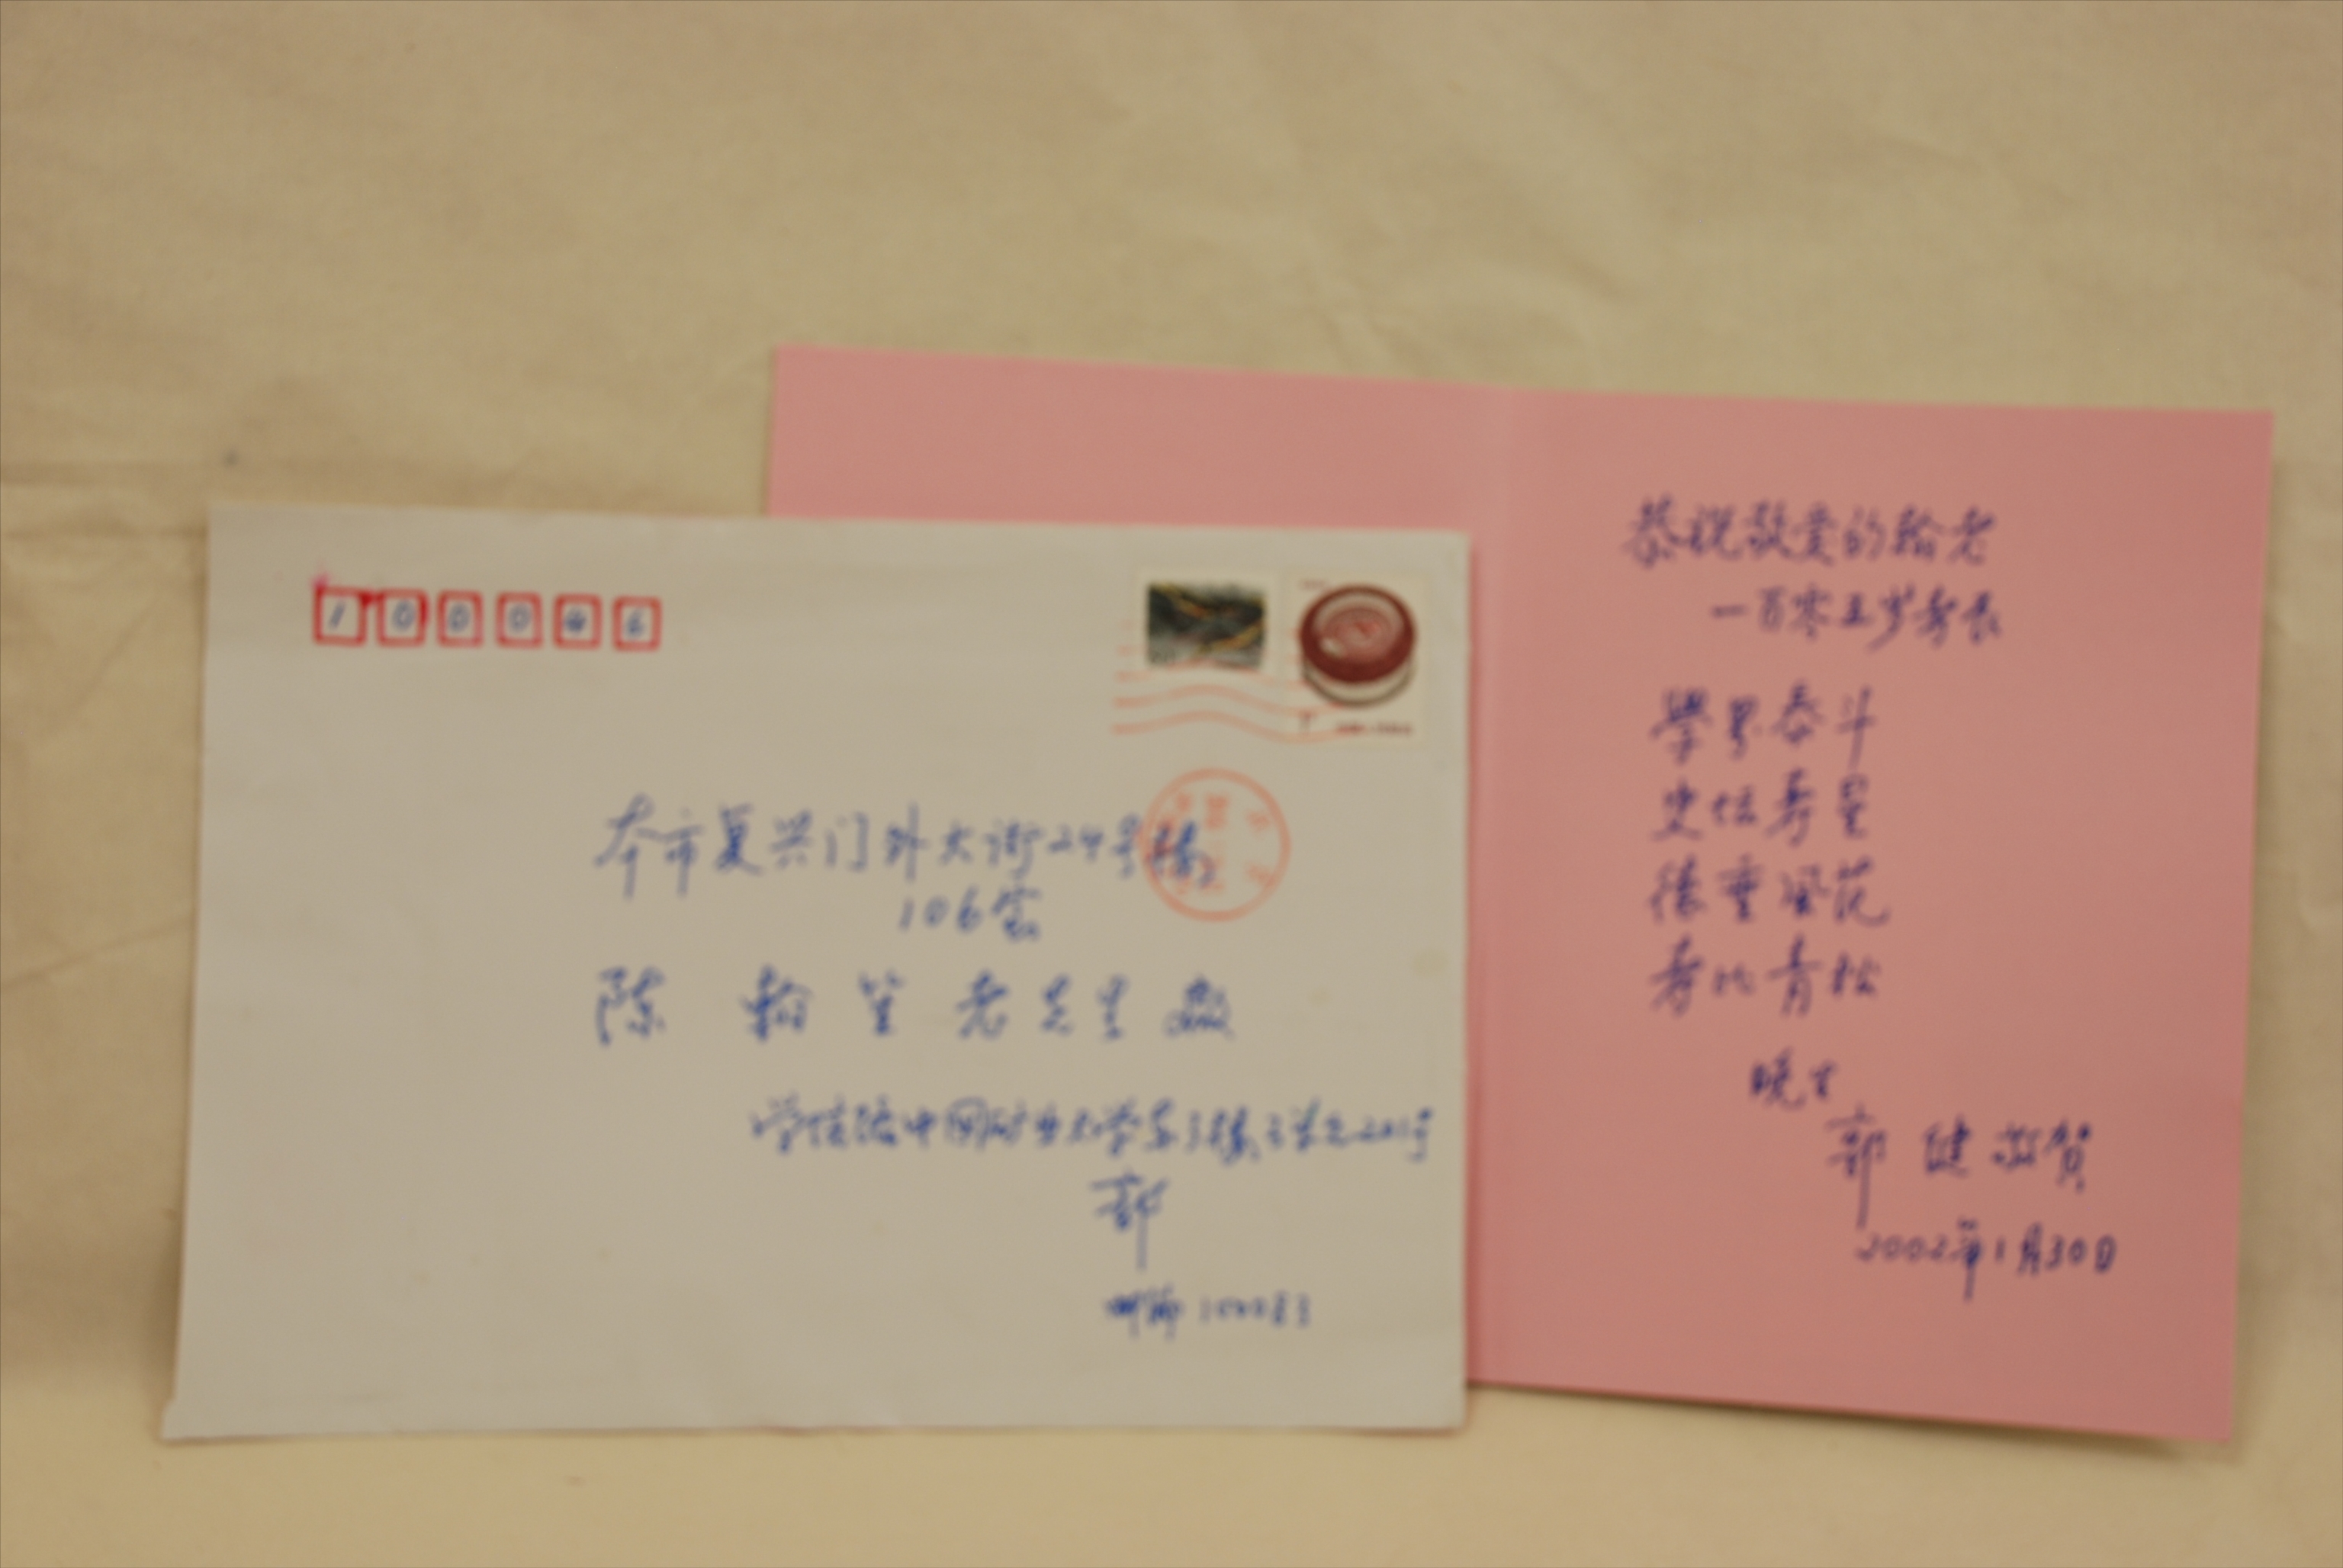 100046
本市复兴门外大街24号楼
106室
陈翰笙老先生启
学院路中国矿业大学
郭
邮编100083
恭祝敬爱的翰老
一百零五岁寿辰
學界泰斗
史坛寿星
德重风范
寿比青松
晚生
郭健敬賀
2002年1月30日